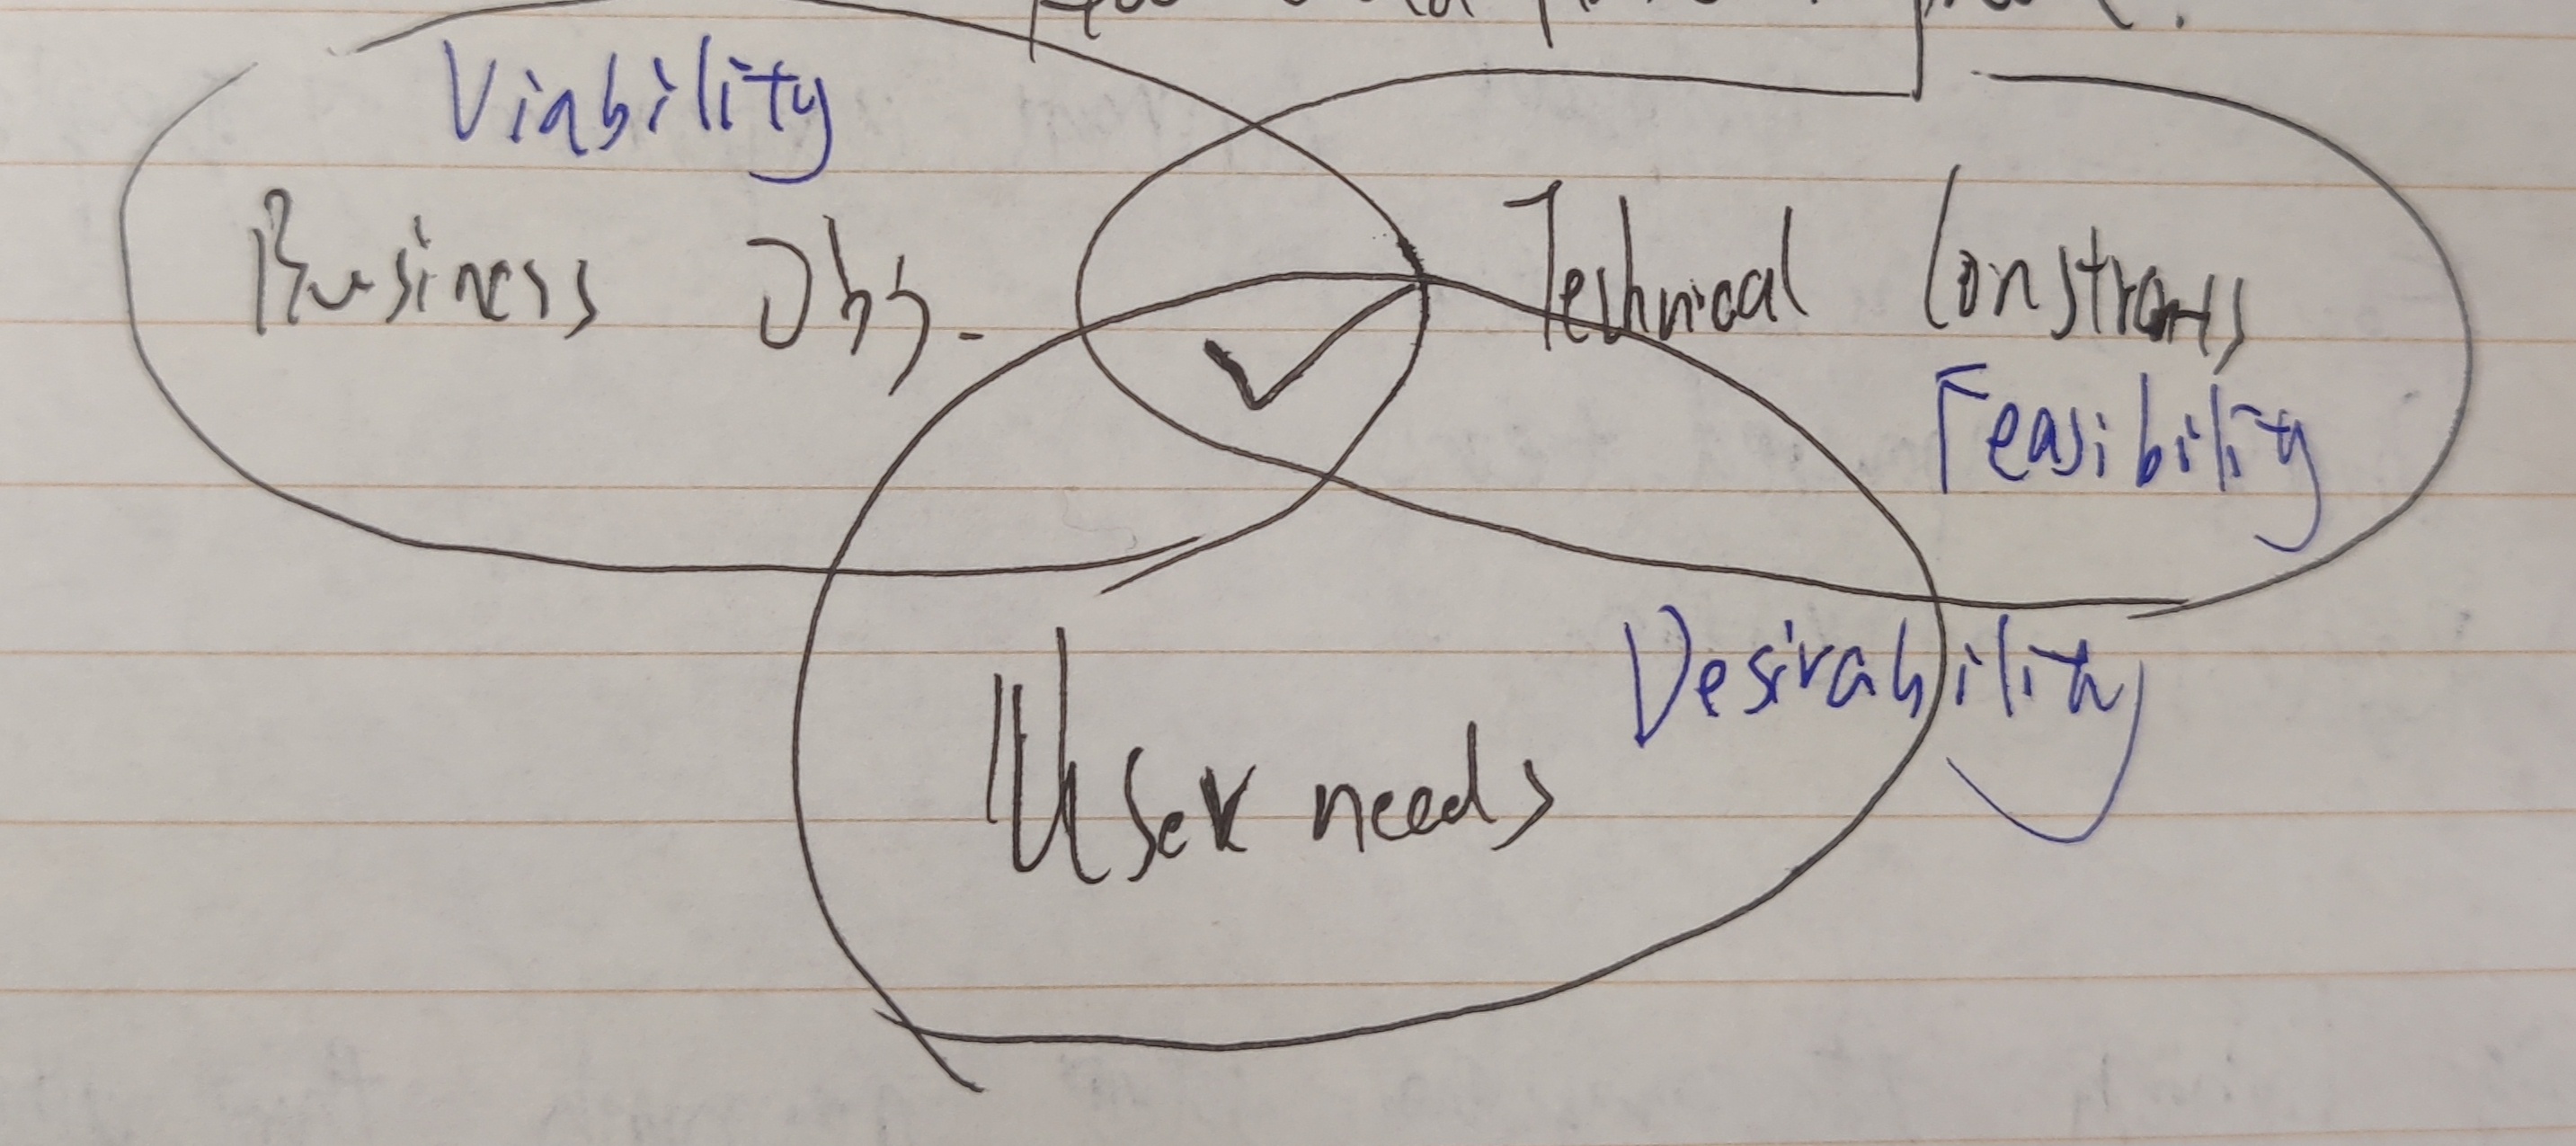 Viability
Business Obj.
Technical Constrants
Feasibility
Desirability
User needs